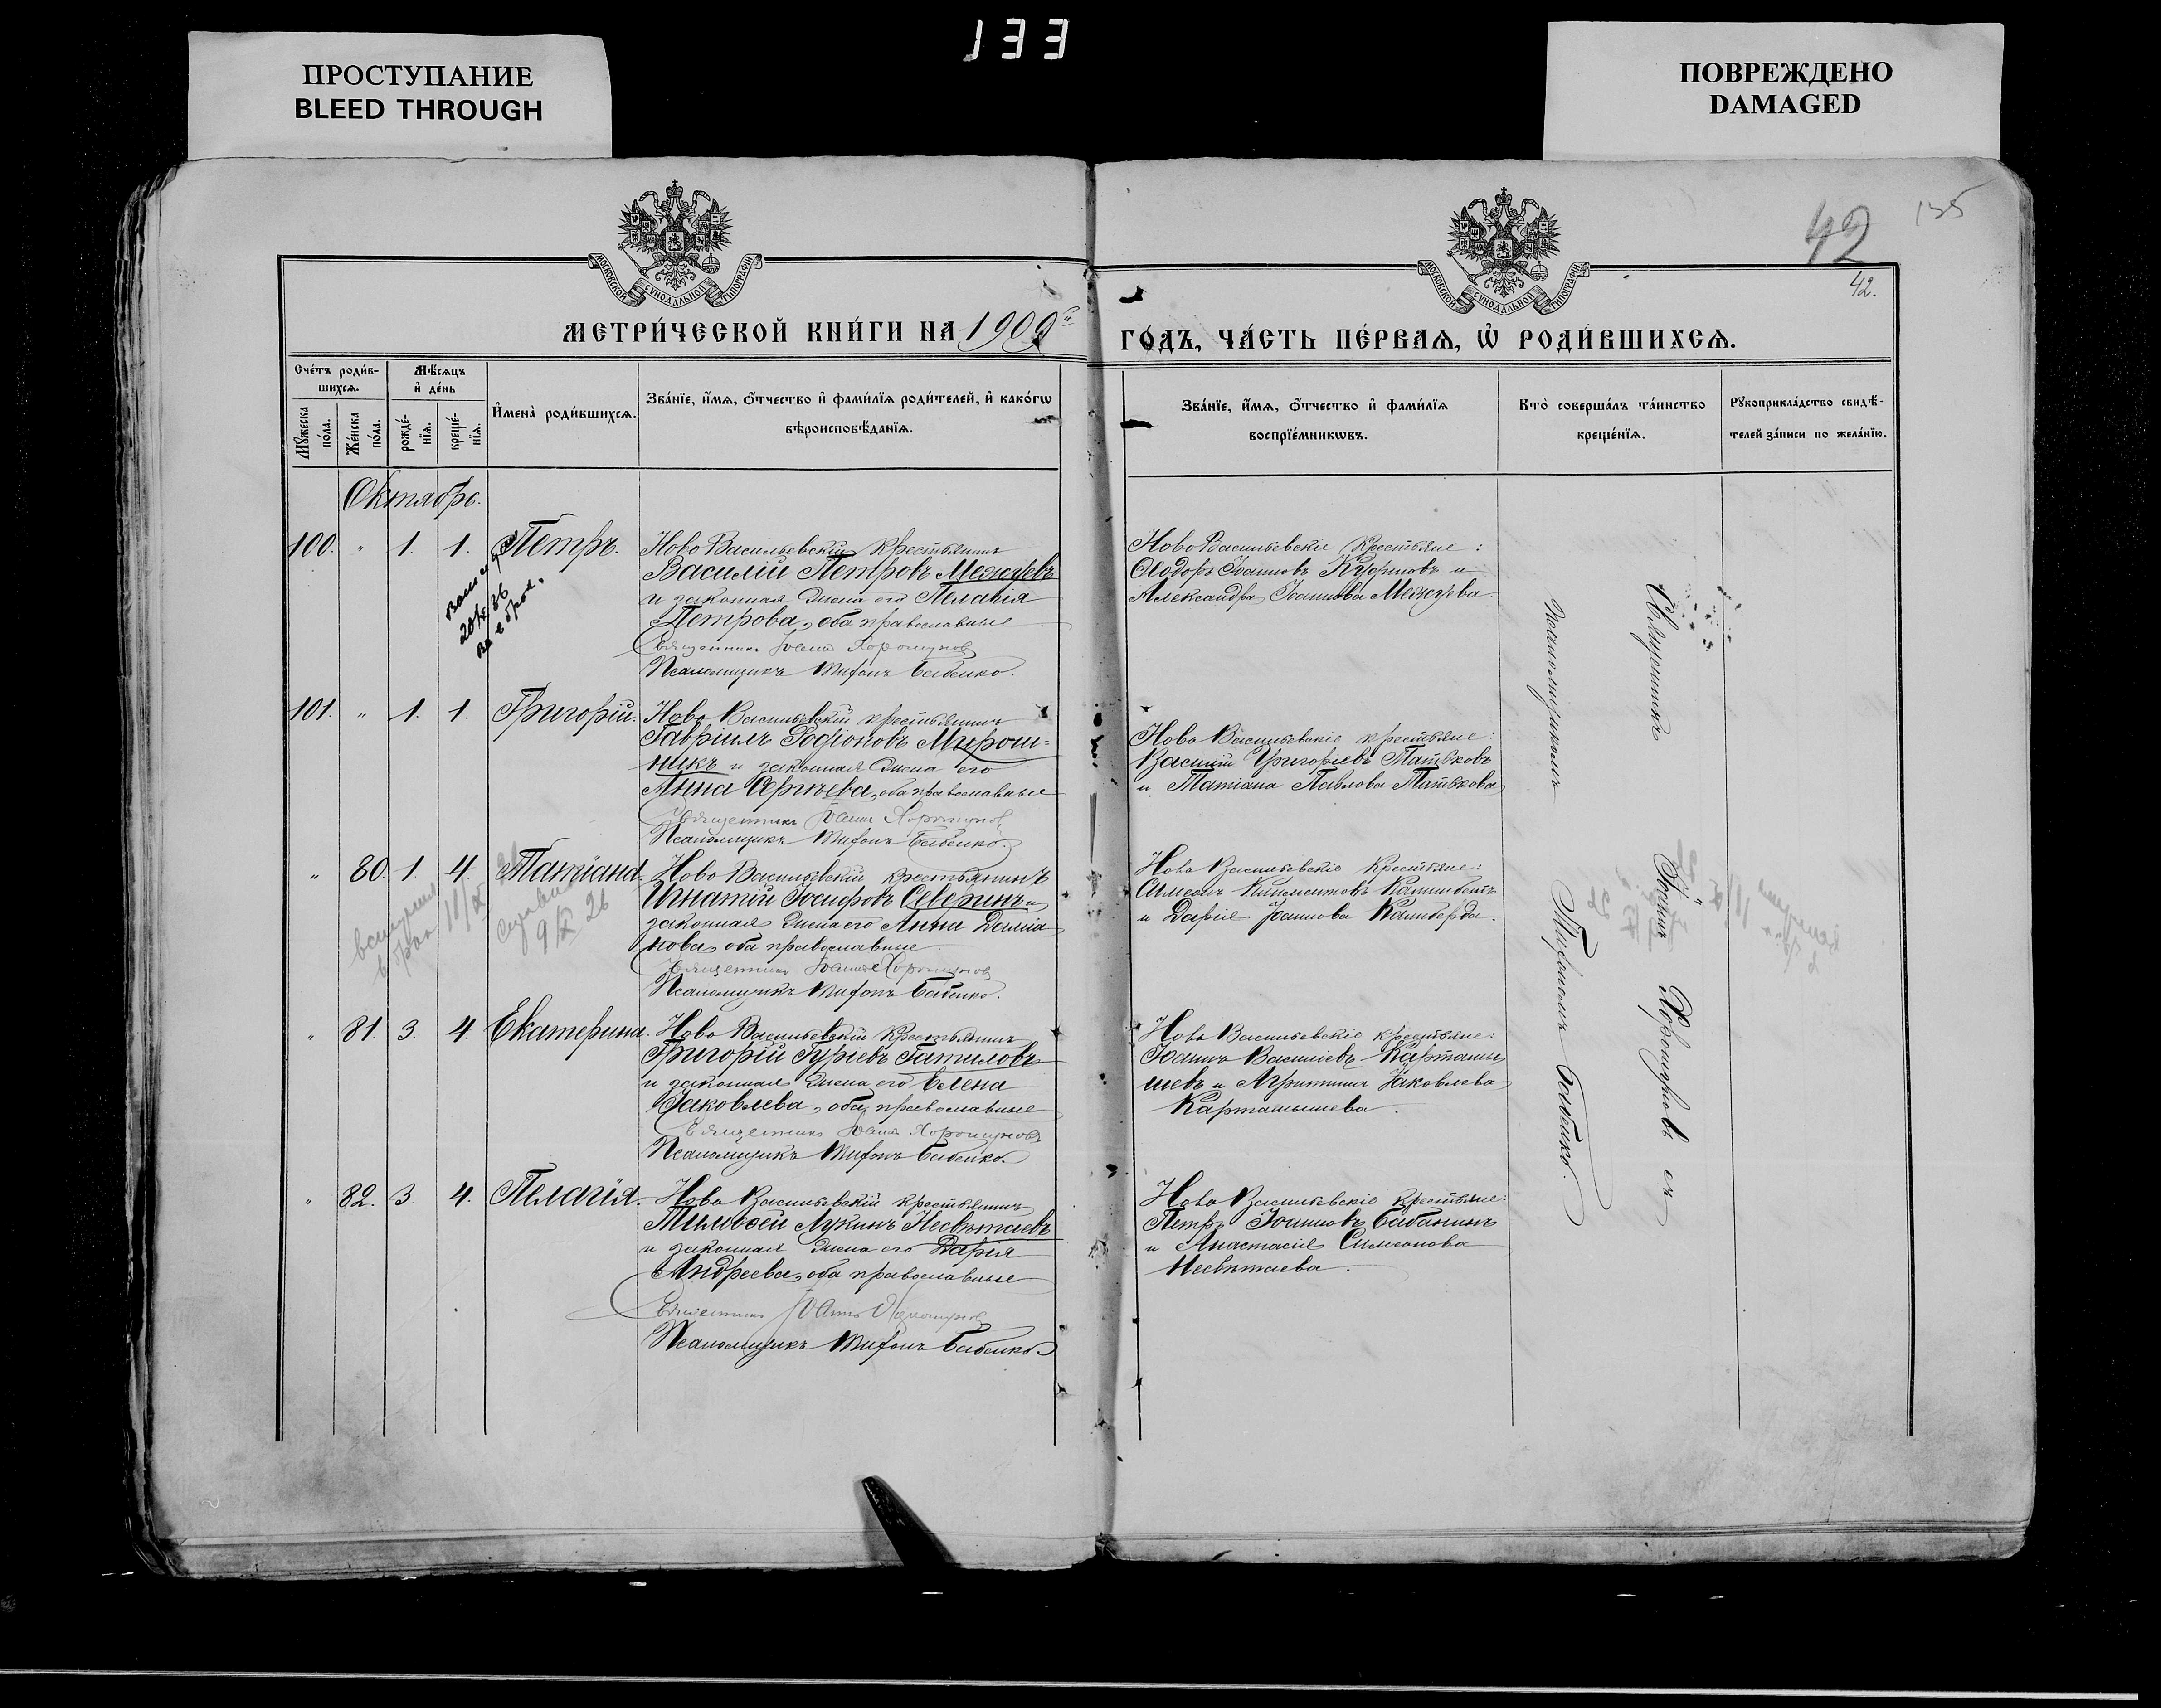 133
ПРОСТУПАНИЕ
BLEED THROUGH
ПОВРЕЖДЕНО
DAMAGED
42
135
42.
МОСКОВСКОЙ СѴНОДАЛЬНОЙ ТИПОГРАФІИ
МОСКОВСКОЙ СѴНОДАЛЬНОЙ ТИПОГРАФІИ
МЕТРИ́ЧЕСКОЙ КНИ́ГИ НА 1909й
ГО́ДЪ, ЧА́СТЬ ПЕ́РВАѦ, Ѡ҆ РОДИ́ВШИХСѦ.
Сче́тъ роди́в-
шихсѧ.
Мѣ́сѧцъ
и҆ де́нь
Мꙋ́жеска
по́ла.
Же́нска
по́ла.
рожде́-
нїѧ.
креще́-
нїѧ.
И҆мена̀ роди́вшихсѧ.
Зва́нїе, и҆́мѧ, ѻ҆́тчество и҆ фами́лїѧ роди́телей, и҆ како́гѡ
вѣроисповѣ́данїѧ.
Зва́нїе, и҆́мѧ, ѻ҆́тчество и҆ фами́лїѧ
воспрїе́мникѡвъ.
Кто̀ соверша́лъ та́инство
креще́нїѧ.
Рꙋкоприкла́дство свидѣ́-
телей за́писи по жела́нїю.
Октябрь.
100. " 1. 1. Петръ.
Ново Васильевскій крестьянинъ
Василій Петровъ Межуевъ
и законная жена его Пелагія
Петрова, оба православные
Священникъ Іоаннъ Хорошуновъ
Псаломщикъ Тифонъ Бабенко.
Ново Васильевскіе крестьяне:
Ѳеодоръ Іоанновъ и
Александра Іоаннова Межуева.
в брак.
101. " 1. 1. Григорій.
Ново Васильевскій крестьянинъ
Гавріилъ Родіоновъ Мирош=
никъ и законная жена его
Анна Сергѣева, оба православные
Священникъ Іоаннъ Хорошуновъ
Псаломщикъ Тифонъ Бабенко.
Ново Васильевскіе крестьяне:
Василій Григорьевъ
и Татіана Павлова
" 80. 1. 4. Татіана.
Ново Васильевскій крестьянинъ
Игнатій Іосифовъ Северинъ и
законная жена его Анна Даміа
нова, оба православные
Священникъ Іоаннъ Хорошуновъ
Псаломщикъ Тифонъ Бабенко.
Ново Васильевскіе крестьяне:
Симеонъ Климентовъ
и Дарія Іоаннова Калиберда.
вступила
в брак
" 81. 3. 4. Екатерина.
Ново Васильевскій крестьянинъ
Григорій Гуріевъ Гатиловъ
и законная жена его Елена
Іаковлева, оба православные
Священникъ Іоаннъ Хорошуновъ
Псаломщикъ Тифонъ Бабенко.
Ново Васильевскіе крестьяне:
Іоаннъ Василіевъ Карташы
шевъ и Агриппина Іаковлева
Карташышева.
" 82. 3. 4. Пелагія.
Ново Васильевскій крестьянинъ
Тимоѳей Лукинъ Несвѣтаевъ
и законная жена его Дарія
Андреева, оба православные
Священникъ Іоаннъ Хорошуновъ
Псаломщикъ Тифонъ Бабенко.
Ново Васильевскіе крестьяне:
Петръ Іоанновъ Бабанинъ
и Анастасія Симеонова
Несвѣтаева.
Священникъ Іоаннъ Хорошуновъ съ
псаломщикомъ Бабенко.